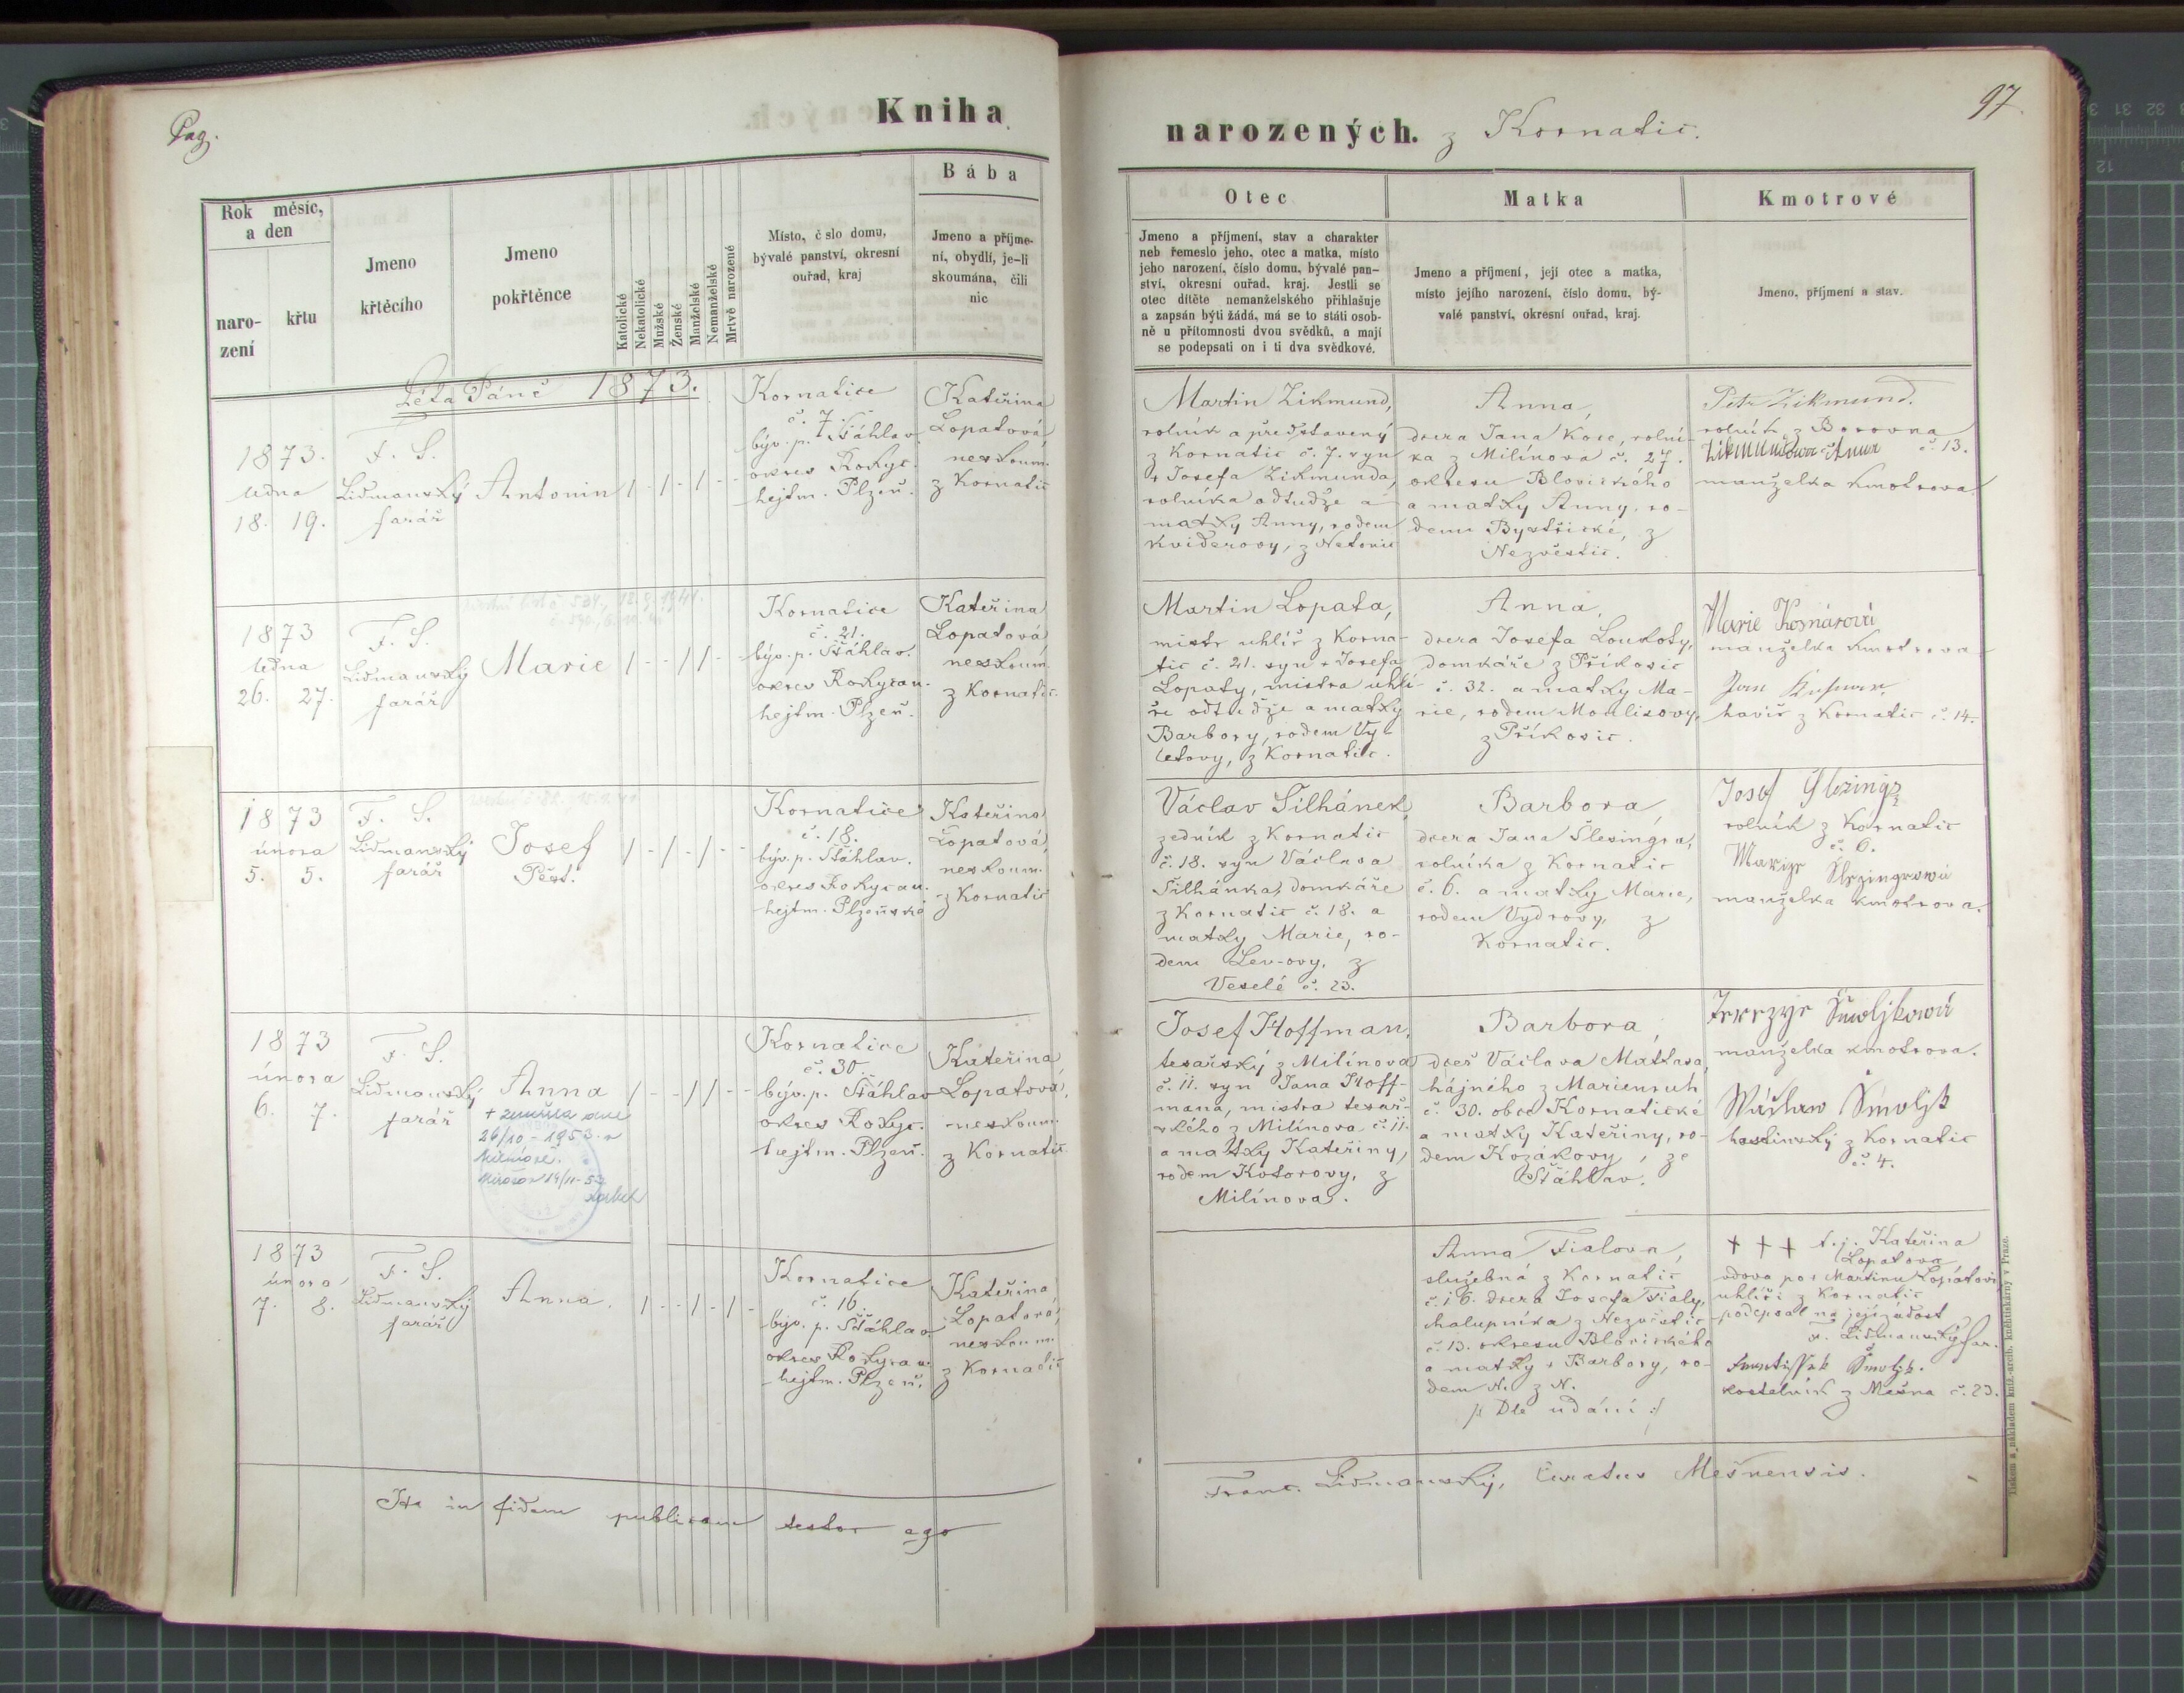 Pag.
Kniha
narozených. z Kornatic.
97
Rok měsíc,
a den
naro-
zení
křtu
Jmeno
křtěcího
Jmeno
pokřtěnce
Katolické
Nekatolické
Mužské
Ženské
Manželské
Nemanželské
Mrtvě narozené
Místo, č slo domu,
bývalé panství, okresní
ouřad, kraj
Bába
Jmeno a příjme-
ní, obydlí, je-li
skoumána, čili
nic
Otec
Jmeno a příjmení, stav a charakter
neb řemeslo jeho, otec a matka, místo
jeho narození, číslo domu, bývalé pan-
ství, okresní ouřad, kraj. Jestli se
otec dítěte nemanželského přihlašuje
a zapsán býti žádá, má se to státi osob-
ně u přítomnosti dvou svědků, a mají
se podepsati on i ti dva svědkové.
Matka
Jmeno a příjmení, její otec a matka,
místo jejího narození, číslo domu, bý-
valé panství, okresní ouřad, kraj.
Kmotrové
Jmeno, příjmení a stav.
Léta Páně 1873.
1873.
ledna
18. 19.
F. S.
Lidmanský
farář
Antonin
1 - 1 - 1 - -
Kornatice
č. 7.
býv. p. Šťáhlav.
okres Rokyc.
hejtm. Plzeň.
Kateřina
Lopatová,
neskoum.
z Kornatic
Martin Zikmund,
rolník a představený
z Kornatic č. 7. syn
+ Josefa Zikmunda,
rolníka odtudže a
matky Anny, rodem
Kviderovy, z Netonic
Anna,
dcera Jana Kose, rolní-
ka z Milínova č. 27.
okresu Blovického
a matky Anny, ro-
dem Bystřické, z
Nezvěstic.
Petr Zikmund.
rolník z Borovna
Zikmundowa Anna č. 13.
manželka kmotrova.
1873
ledna
26. 27.
F. S.
Lidmanský
farář
Marie
1 - - 1 1 - -
Kornatice
č. 21.
býv. p. Šťáhlav.
okres Rokycan.
hejtm. Plzeň.
Kateřina
Lopatová
neskoum.
z Kornatic.
Martin Lopata,
mistr uhlíř z Korna-
tic č. 21. syn + Josefa
Lopaty, mistra uhlí-
ře odtudže a matky
Barbory, rodem Vý-
letovy, z Kornatic.
Anna,
dcera Josefa Loukoty,
domkáře z Příkosic
č. 32. a matky Ma-
rie, rodem Moulisovy,
z Příkosic.
Marie Kosnárová
manželka kmotrova
Jan
havíř z Kornatic č. 14.
1873
února
5. 5.
F. S.
Lidmanský
farář
Josef
Pěst.
1 - 1 - 1 - -
Kornatice
č. 18.
býv. p. Šťáhlav.
okres Rokycan.
hejtm. Plzeňské
Kateřina
Lopatová,
neskoum.
z Kornatic
Václav Šilhánek,
zedník z Kornatic
č. 18. syn Václava
Šilhánka, domkáře
z Kornatic č. 18. a
matky Marie, ro-
dem Lev-ovy, z
Veselé č. 23.
Barbora,
dcera Jana Šlesingra,
rolníka z Kornatic
č. 6. a matky Marie,
rodem Vydrovy, z
Kornatic.
Josef
rolník z Kornatic
č. 6.
Marye Šlezingrowá
manželka kmotrova.
1873
února
6. 7.
F. S.
Lidmanský
farář
Anna
+ zemřela dne
26/10 - 1953 v
Mirošov 14/11-53
1 - - 1 1 - -
Kornatice
č. 30.
býv. p. Šťáhlav
okres Rokyc.
hejtm. Plzeň.
Kateřina
Lopatová,
neskoum.
z Kornatic
Josef Hoffman,
tesařský z Milínova
č. 11. syn Jana Hoff-
mana, mistra tesař-
ského z Milínova č. 11.
a matky Kateřiny,
rodem Kotorovy, z
Milínova.
Barbora,
dceř Václava Matlasa
hájného z Marienruh
č. 30. obce Kornatické
a matky Kateřiny, ro-
dem Kozákovy, ze
Šťáhlav.
Terezye Šmoljkowá
manželka kmotrova.
Wáclaw Šmoljk
hostinský z Kornatic
č. 4.
1873
února
7. 8.
F. S.
Lidmanský
farář
Anna.
1 - - 1 - 1 -
Kornatice
č. 16.
býv. p. Šťáhlav.
okres Rokycan.
hejtm. Plzeň.
Kateřina
Lopatová,
neskoum.
z Kornatic
Anna Fialova,
služebná z Kornatic
č. 16. dcera Josefa Fialy,
chalupníka z Nezvěstic
č. 13. okresu Blovického
a matky + Barbory, ro-
dem N. z N.
/: Dle udání :/
+ + + t. j. Kateřina
Lopatova
vdova po + Martinu Lopatovi,
uhlíři z Kornatic
podepsal na její žádost
Lidmanský far.
Frantissek Šmoljk.
kostelník z Mešna č. 23.
Ita in fidem publicam testor ego
Franc. Lidmanský, Curatus Mešnensis.
Tiskem a nákladem kníž. arcib. knihtiskárny v Praze.